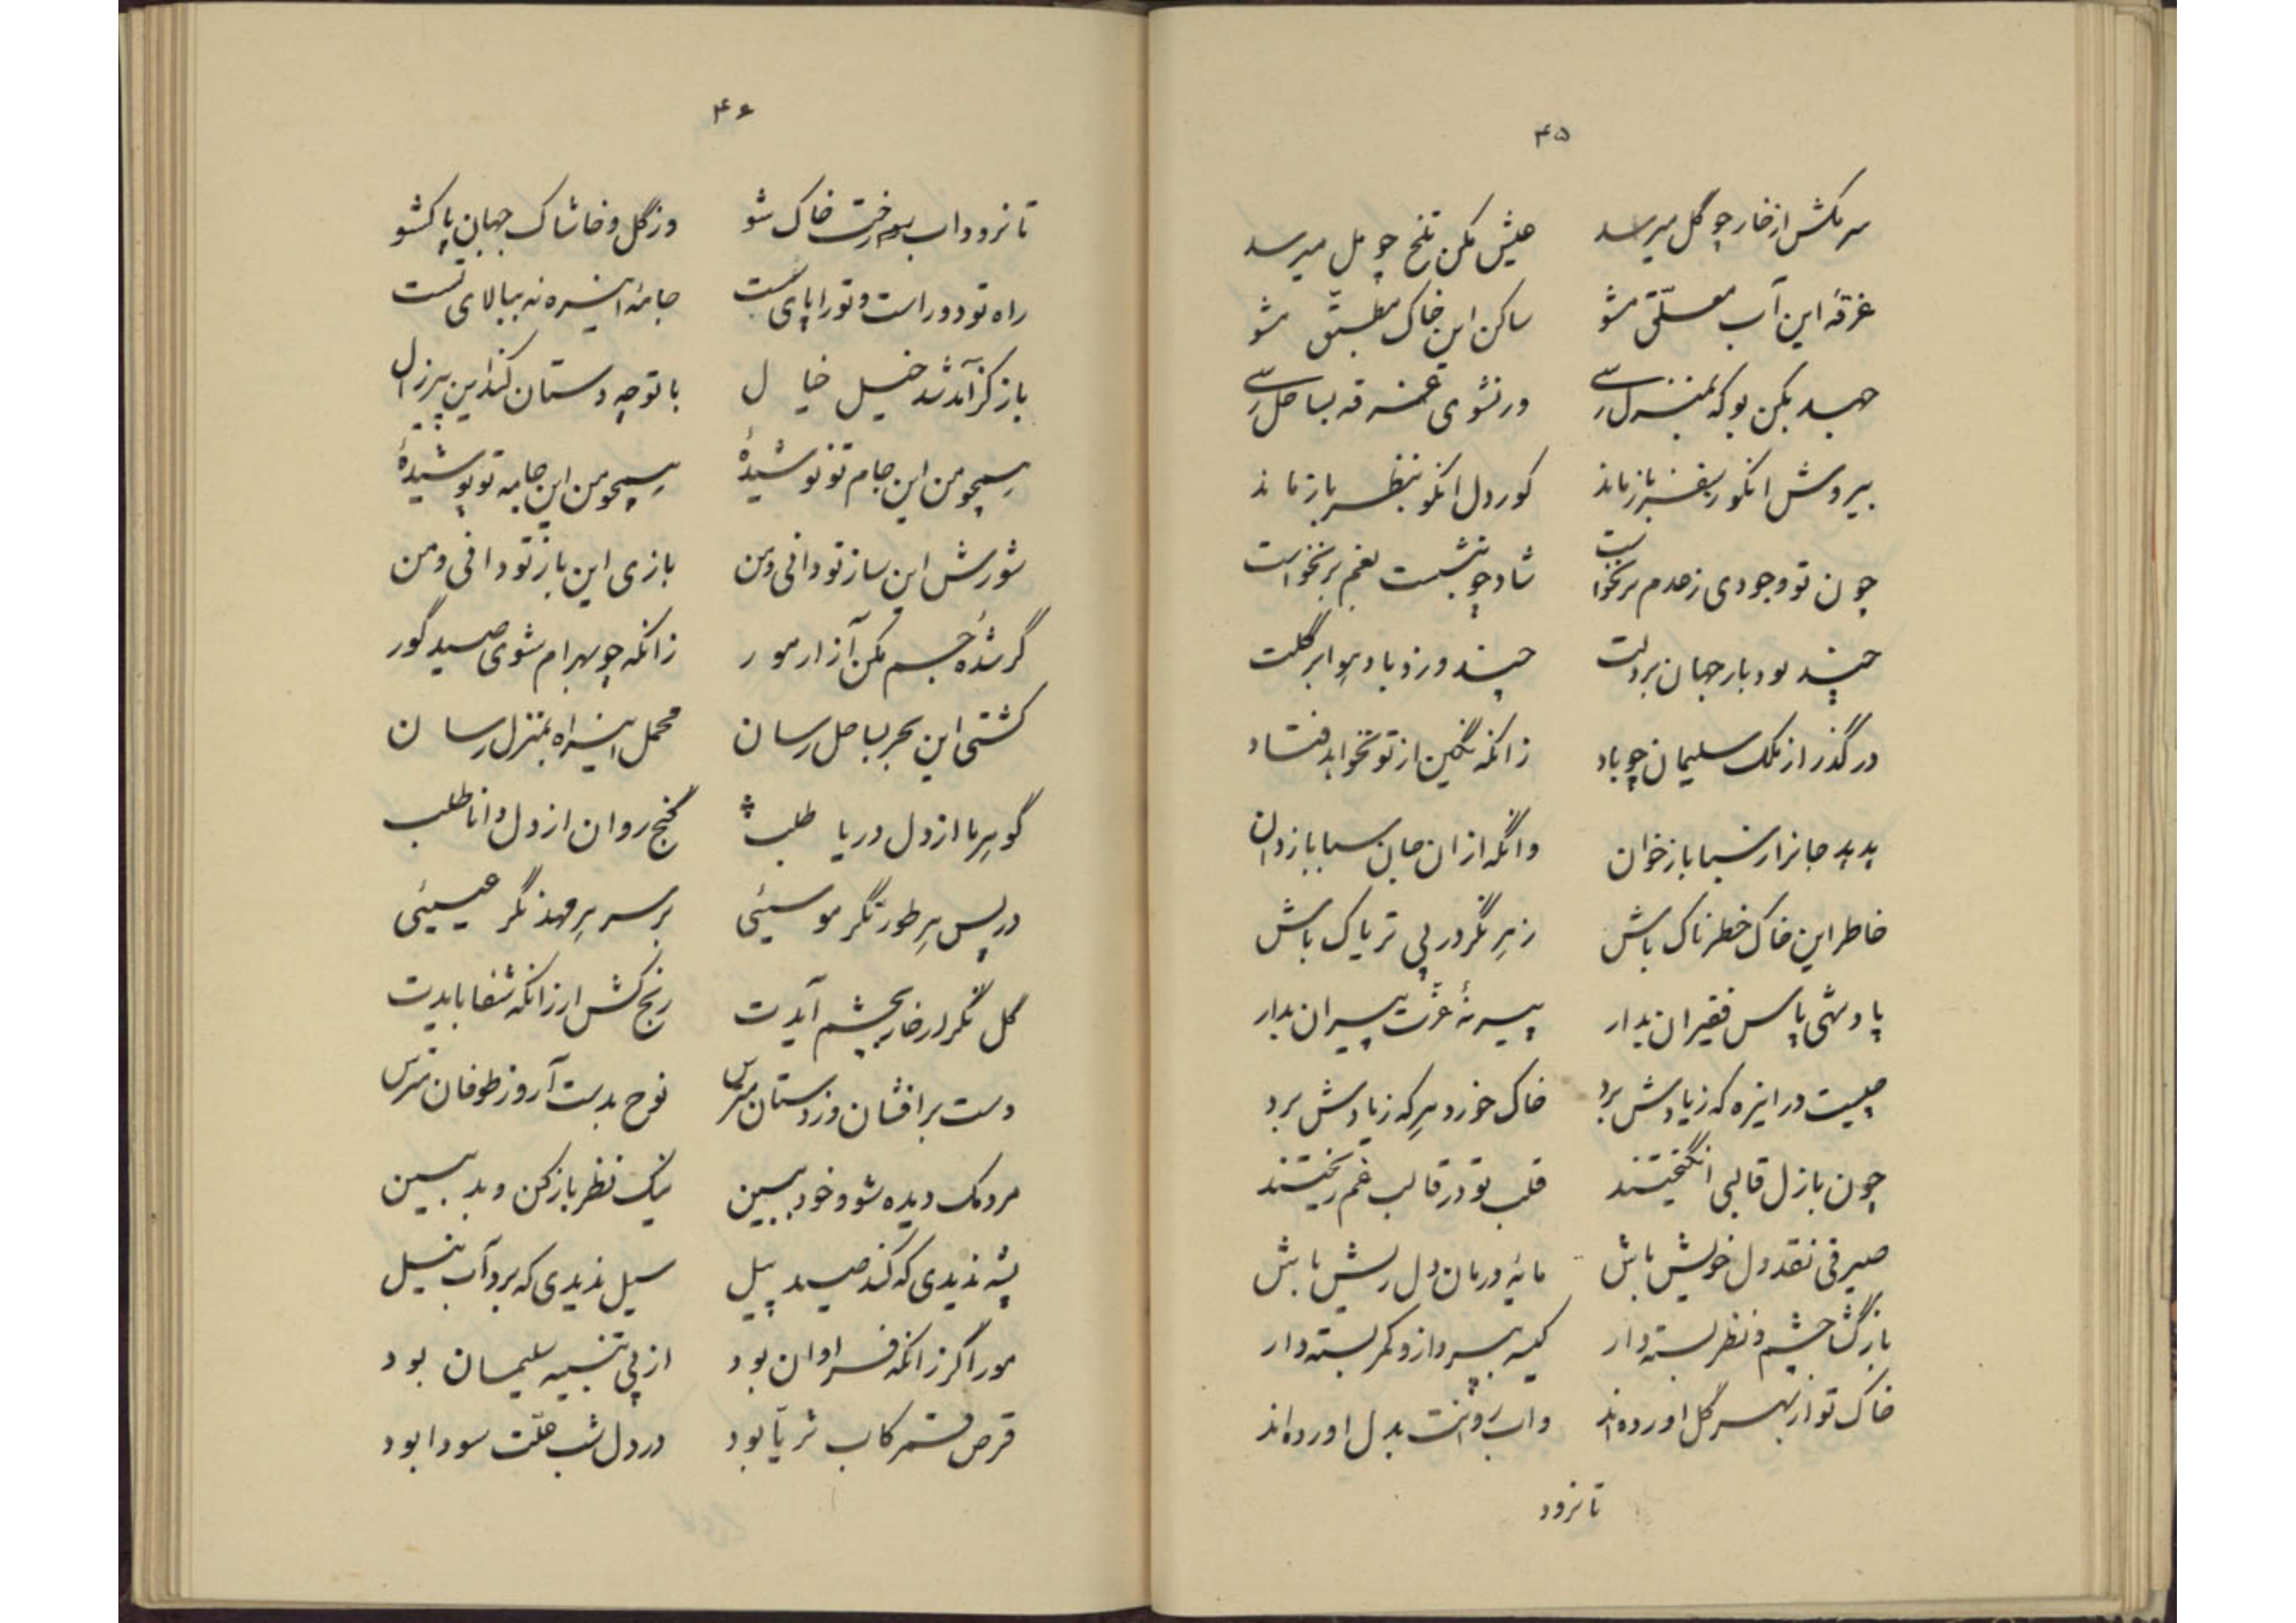 ۴۵
سر مکش از خار چو گل میرسد عیش مکن تلخ چو مل میرسد
غرقه این آب معلّق مشو ساکن این خاک مطبّق مشو
جهد بکن بو که بمنزل رسی ور نشوی غرقه بساحل رسی
بیروش انکو بسفر بازماند کوردل انکو بنظر بازماند
چون تو وجودی ز عدم برنخواست شاد چو ننشست بغم برنخواست
چند بود بار جهان بر دلت چند وزد باد هوا بر گلت
درگذر از ملک سلیمان چو باد زانکه نگین از تو نخواهد فتاد
هدهد جانرا ز سبا باز خوان وانگه از ان جان سبا باز دان
خاطر این خاک خطرناک باش زهر نگر در پی تریاک باش
پادشهی پاس فقیران بدار پیر نهٔ عزّت پیران بدار
چیست در اینره که زیادش برد خاک خورد هر که زیادش برد
چون بازل قالبی انگیختند قلب تو در قالب غم ریختند
صیرفی نقد دل خویش باش مایهٔ درمان دل ریش باش
بازگشا چشم و نظر بسته دار کیسه بپرداز و کمر بسته دار
خاک تو از بهر گل اورده‌اند واب روانت بدل اورده‌اند
تا نرود
۴۶
تا نرود اب رخت خاک شو وز گل و خاشاک جهان پاکشو
راه تو دور است و تورا پای سست جامهٔ اینره نه ببالای تست
باز کز آمد شد خیل خیال با تو چه دستان کند این پیر زال
هیچو من این جام تو نوشیدهٔ هیچو من این جامه تو پوشیدهٔ
شورش این ساز تو دانی و من بازی این باز تو دانی و من
گر شدهٔ جم مکن آزار مور زانکه چو بهرام شوی صید گور
کشتی این بحر بساحل رسان محمل اینراه بمنزل رسان
گوهر ما از دل دریا طلب گنج روان از دل دانا طلب
در پس هر طور نگر موسیئی بر سر هر مهد نگر عیسیئی
گل نگر ار خار بچشم آیدت رنج کش ار زانکه شفا بایدت
دست برافشان وز دستان مترس نوح بدست آر وز طوفان مترس
مردمک دیده شو و خود مبین نیک نظر باز کن و بد مبین
پشه ندیدی که کند صید پیل سیل ندیدی که برد آب نیل
مور اگر زانکه فراوان بود از پی تنبیه سلیمان بود
قرص قمر کاب ثریّا بود در دل شب علّت سودا بود